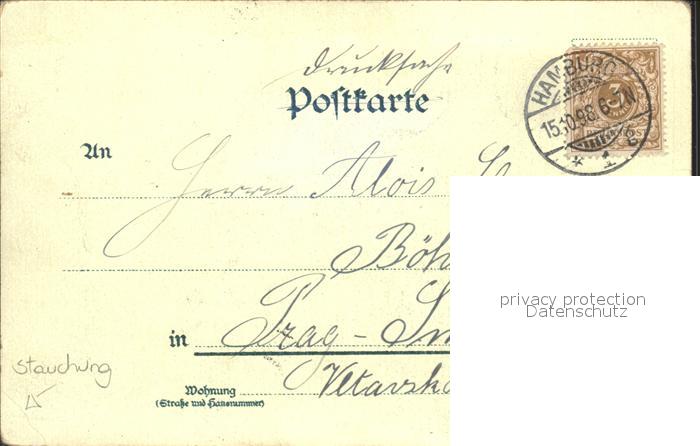 Drucksache
Postkarte
HAMBURG
15.10.98.6-7N
* 1 g
3
An
Herrn Alois
Böh
in Prag – Sm
Wohnung
(Straße und Hausnummer)
Vltavska
Stauchung
privacy protection
Datenschutz